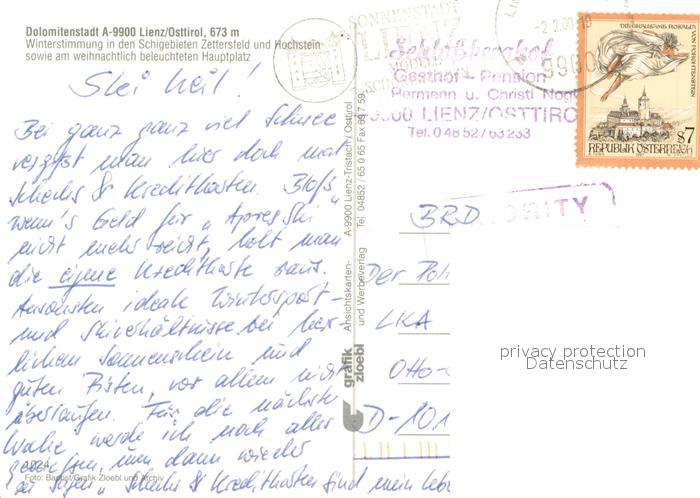 Dolomitenstadt A-9900 Lienz/Osttirol, 673 m
Winterstimmung in den Schigebieten Zettersfeld und Hochstein
sowie am weihnachtlich beleuchteten Hauptplatz
Ski heil!
Bei ganz ganz viel Schnee
vergisst man hier doch mal
Schecks & Kreditkarten. Bloß
wenn's Geld für „Apresski"
nicht mehr reicht, holt man
die eigene Kreditkarte raus.
Ansonsten ideale Wintersport-
und Skiverhältnisse bei herr-
lichem Sonnenschein und
guten Pisten, vor allem nicht
überlaufen. Für die nächste
Woche werde ich noch alles
um dann wieder
zu sagen „Schecks & Kreditkarten sind mein Leb
1024
Foto: Baptist/Grafik Zloebl und Archiv
SONNENSTADT
LIENZ
-2.2.00-10
9900
Schloßberghof
Gasthof - Pension
Hermann u. Christl Nogl
9900 LIENZ/OSTTIROL
Tel. 04852/63233
DIE GRAUSAME ROSALIA
VON FORCHTENSTEIN
S7
REPUBLIK ÖSTERREICH
PRIORITY
grafik
zloebl
Ansichtskarten-
und Werbeverlag
A-9900 Lienz-Tristach / Osttirol
Tel. 04852 / 65 0 65 Fax 69 7 59
BRD
Der Pol
LKA
Otto-
D-101
privacy protection
Datenschutz